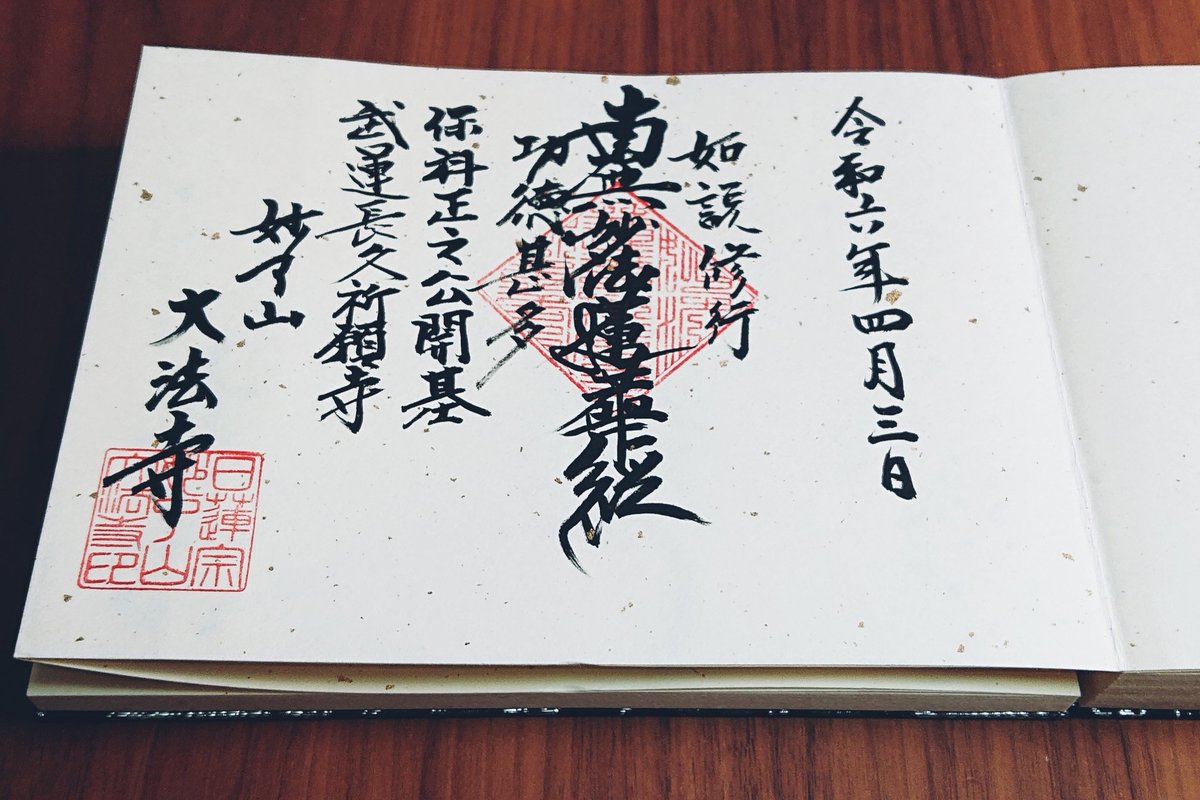 令和六年四月三日
如説修行
南無妙法蓮華経
功徳甚多
保科正之公開基
武運長久祈願寺
妙了山
大法寺
日蓮宗
妙了山
大法寺印